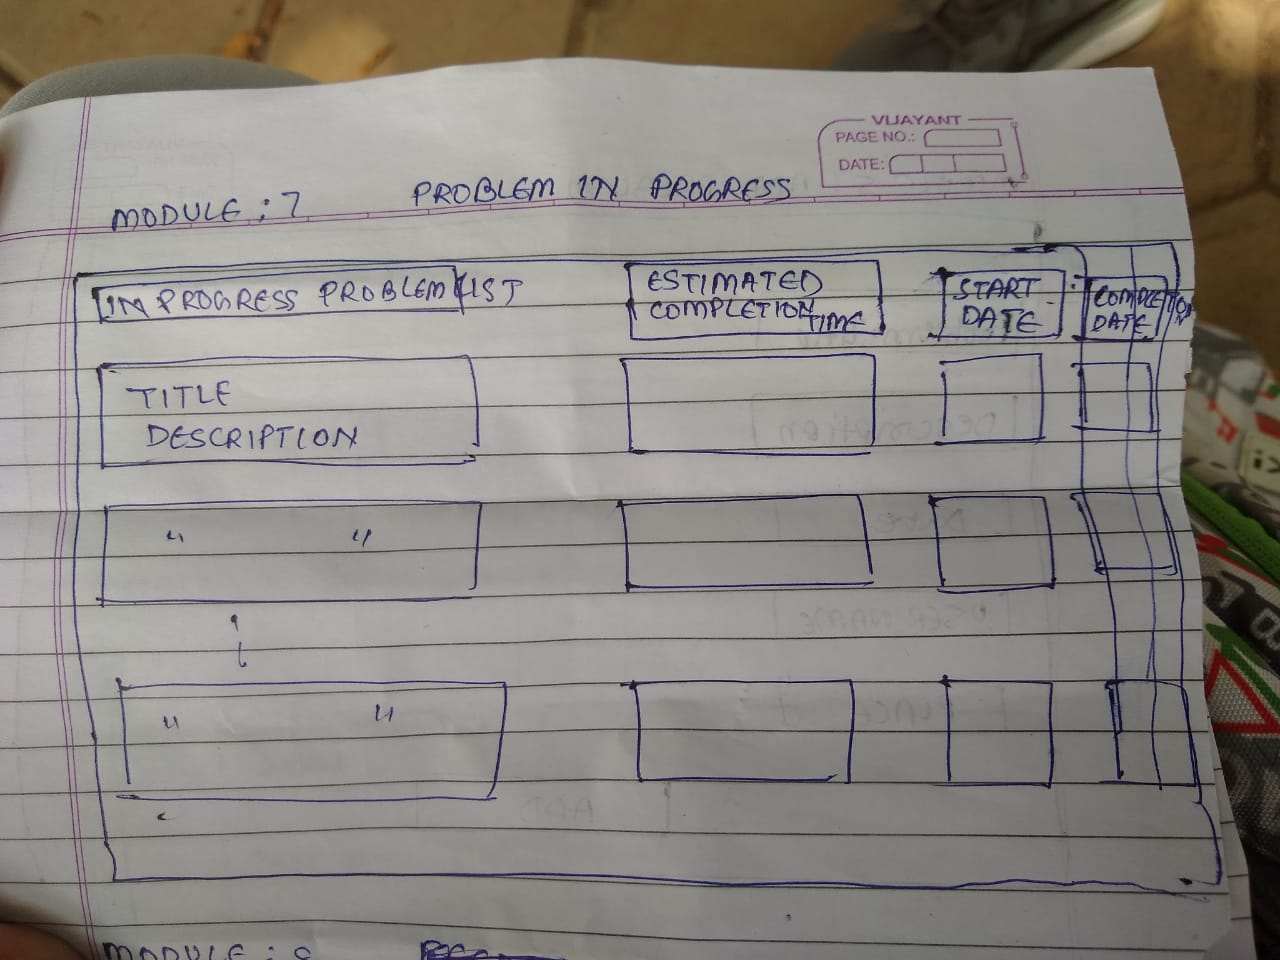 VIJAYANT
PAGE NO.:
DATE:
MODULE : 7 PROBLEM IN PROGRESS
IN PROGRESS PROBLEM LIST
ESTIMATED
COMPLETION
TIME
START
DATE
COMPLETION
DATE
TITLE
DESCRIPTION
" "
" "
MODULE :